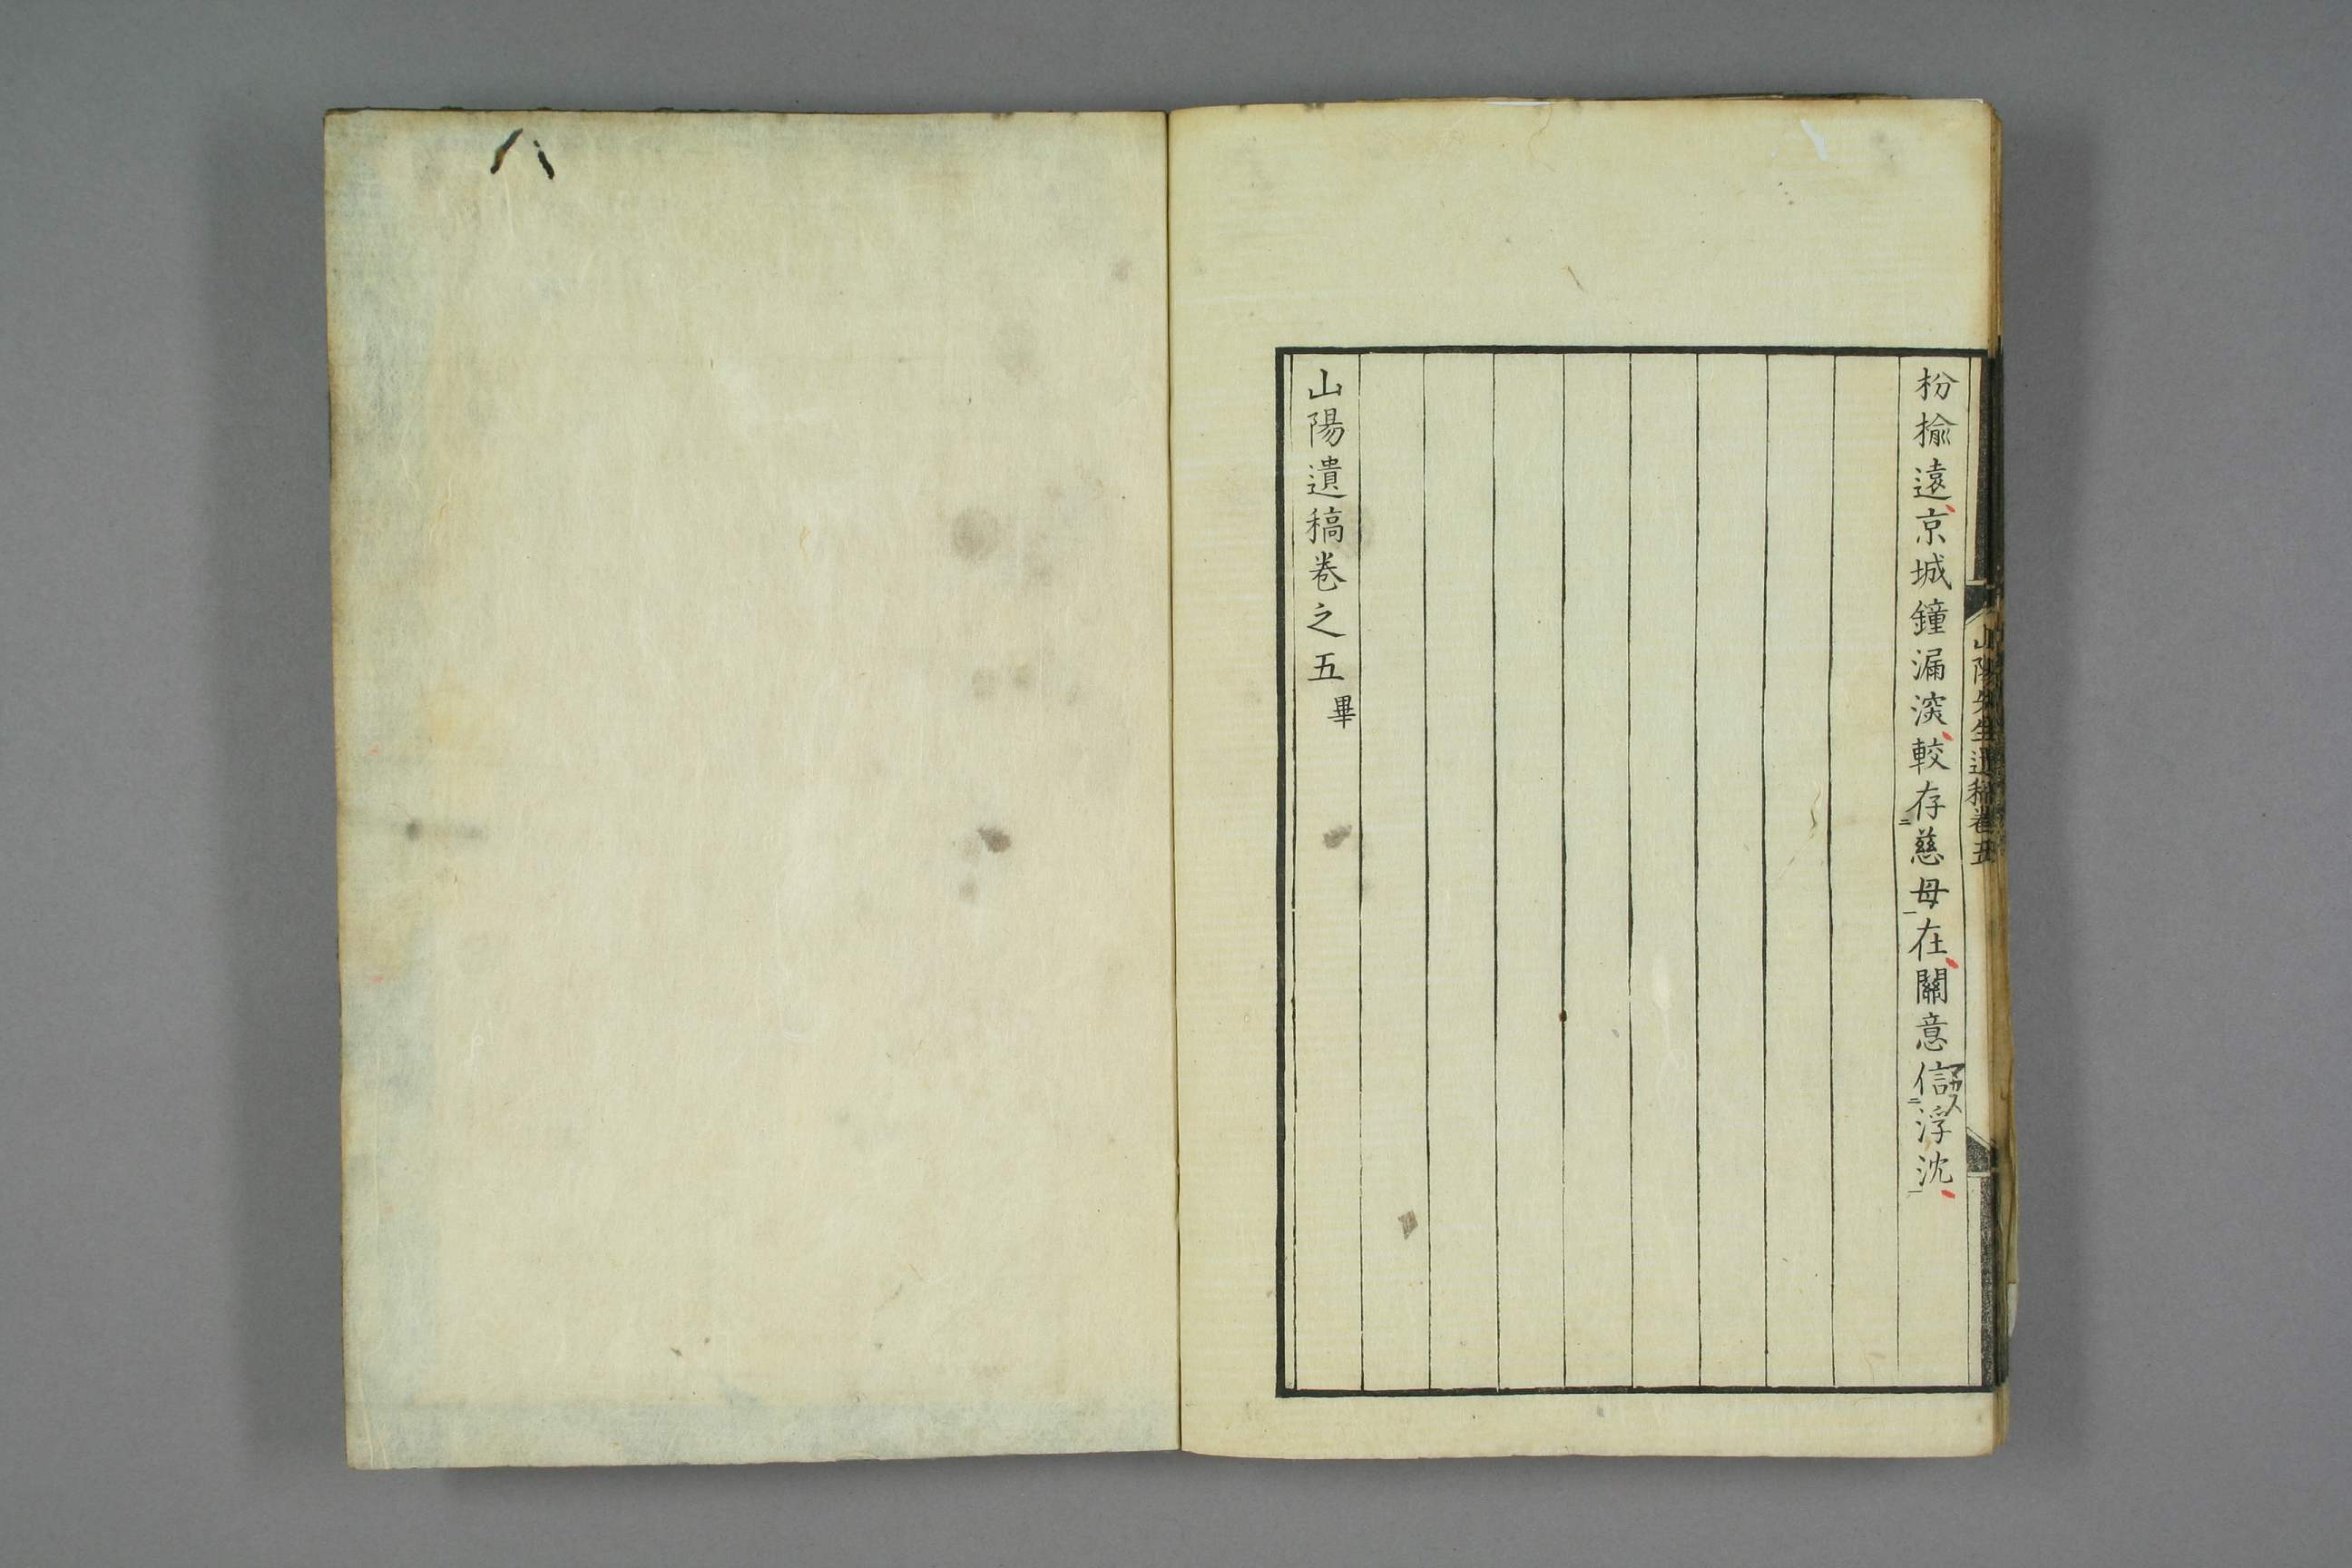 枌楡遠京城鐘漏深較存慈母在關意信マカス浮沈
山陽遺稿卷之五畢
山陽先生遺稿卷五
八